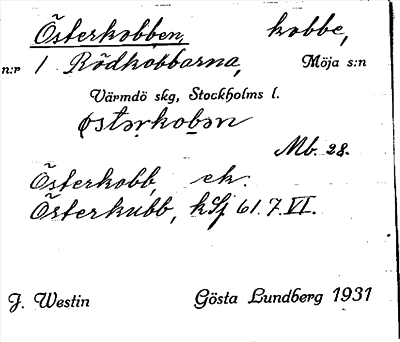 Österkobben, kobbe,
n:r 1 Rödkobbarna, Möja s:n
Värmdö skg, Stockholms l.
østərkobən
Mb. 28.
Österkobb, ek.
Österkubb, kSj 61.7.VI.
J. Westin Gösta Lundberg 1931